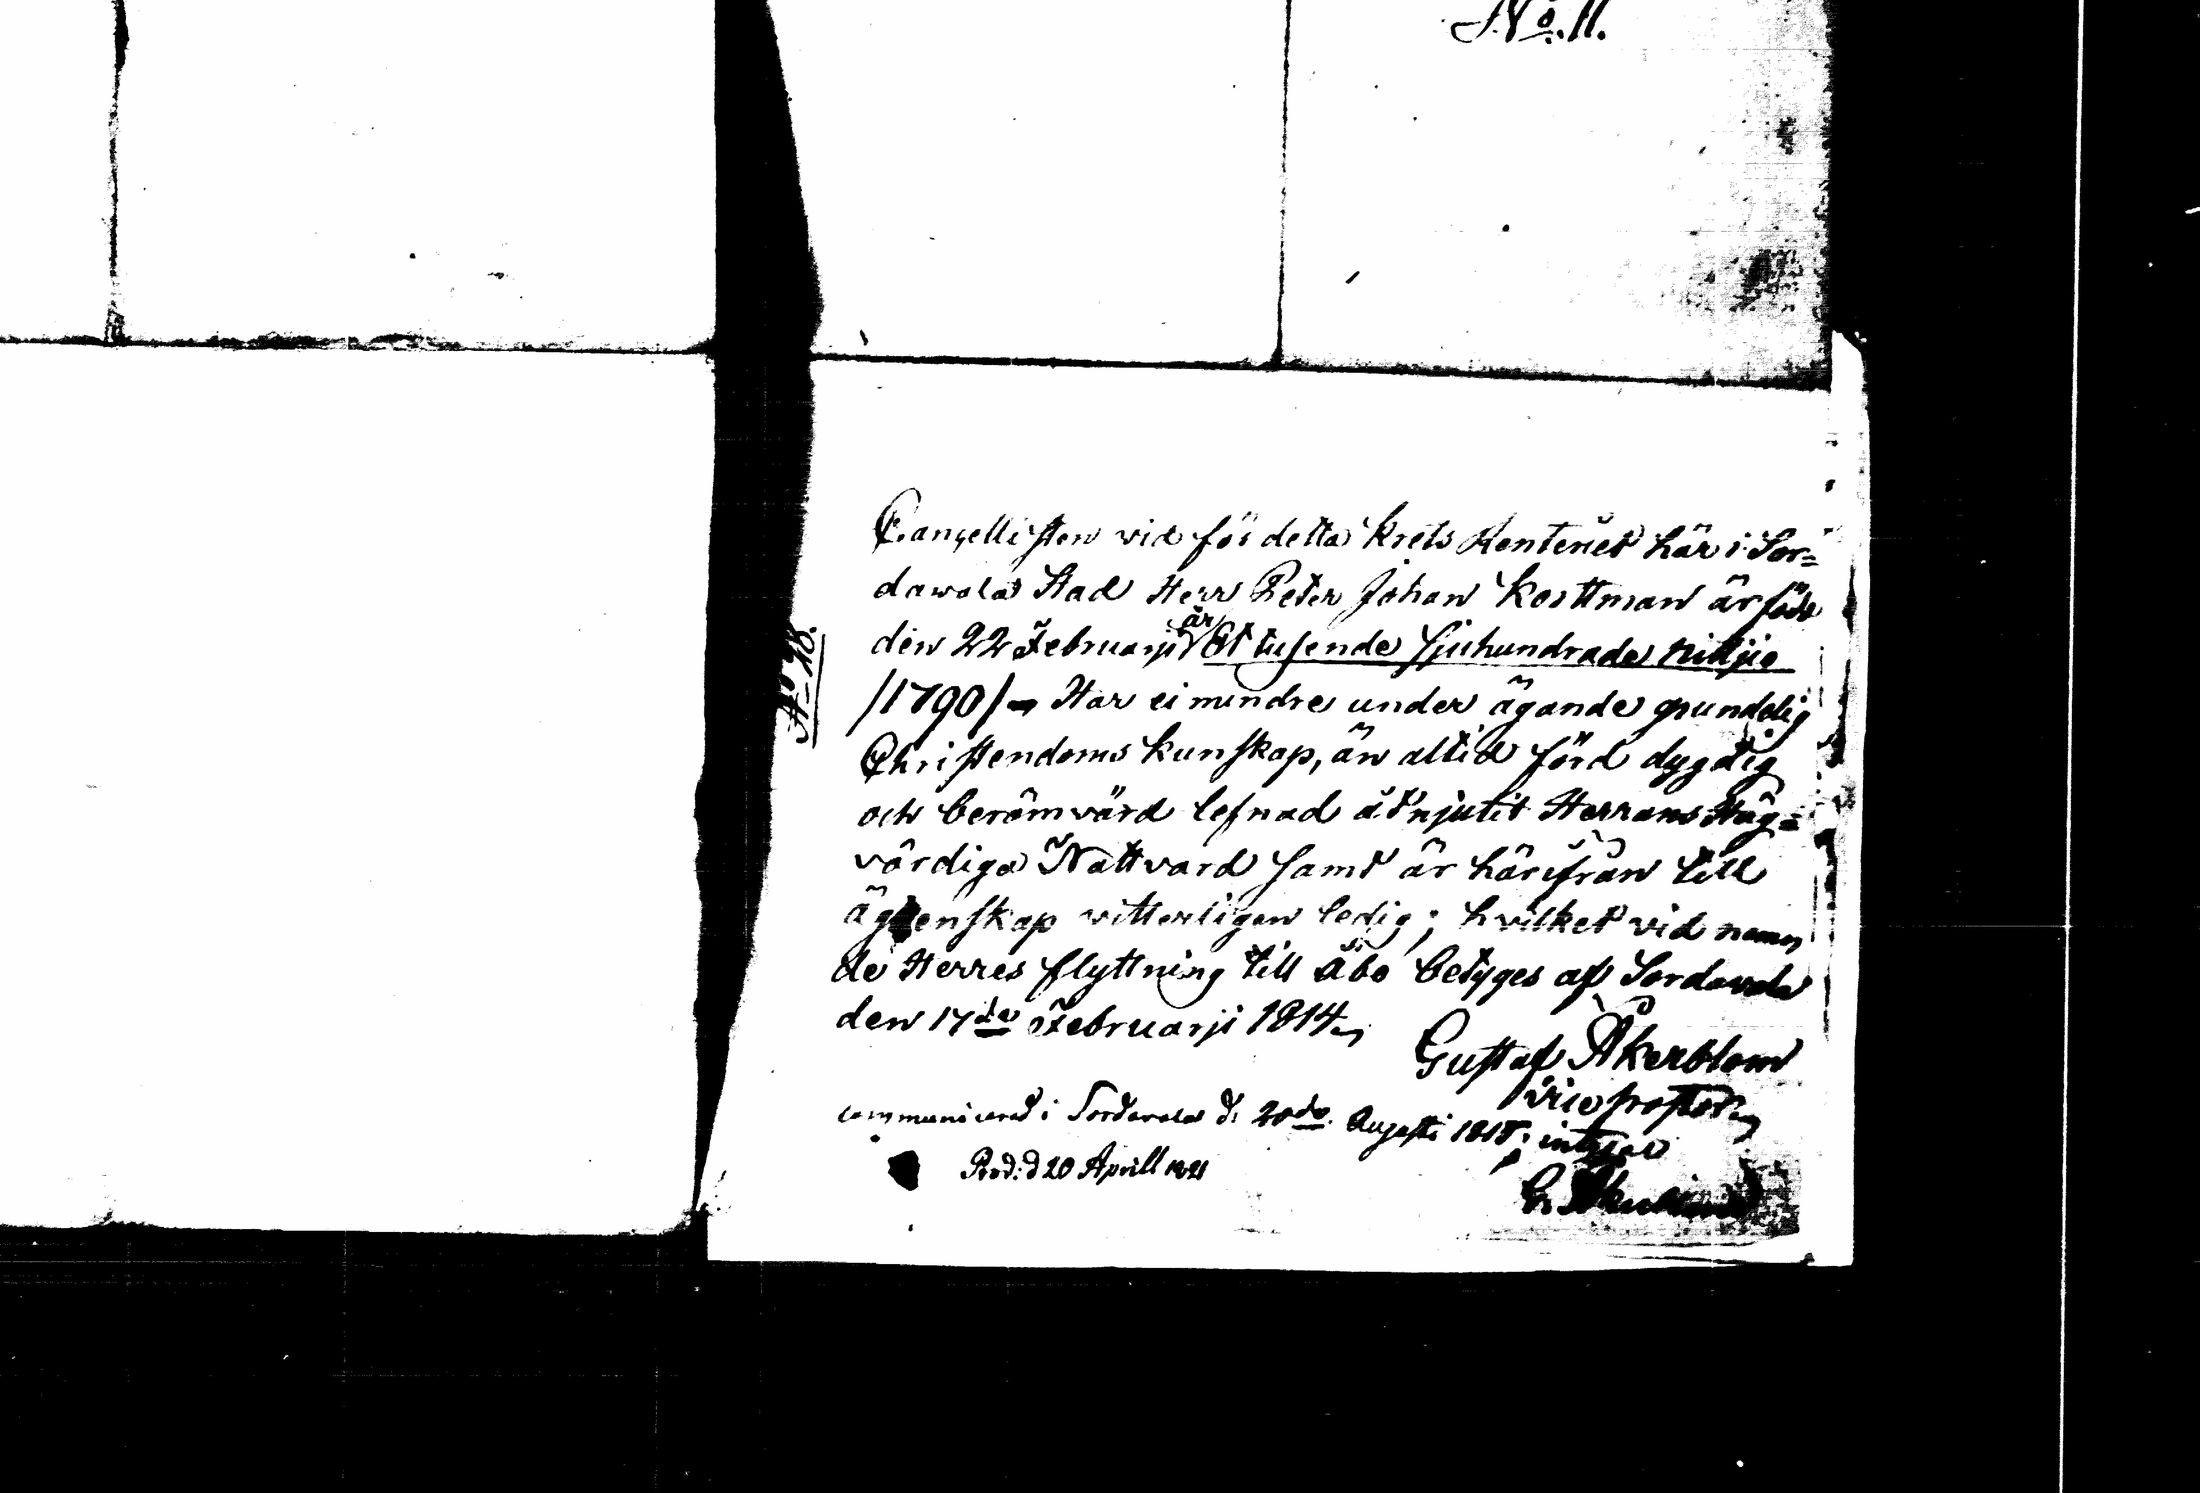 No. 11.
No 18.
Cancellisten vid för detta Krets Contoiret här i Sor=
dawala Stad Herr Peter Johan Korttman är född
den 22 Februarji år Et tusende sjuhundrade nittjio
/1790/ Har ei mindre under ägande grundelig
Christendoms kunskap, än altid förd dygdig
och berömvärd lefnad åtnjutit Herrans Hög=
värdiga Nattvard samt är härifrån till
ägtenskap witterligen ledig; hvilket vid nämn
de Herres flyttning till Åbo betyges af Sordavala
den 17de Februarji 1814
Gustaf Åkerblom
Vice prost
communicerad i Sordavala d: 20de Augusti 1818;
Prod: d 20 Aprill 1821
G.